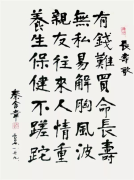 長壽歌
有錢難買命長壽
無私易解胸風波
親友往來人情重
養生保健不蹉跎
秦含章